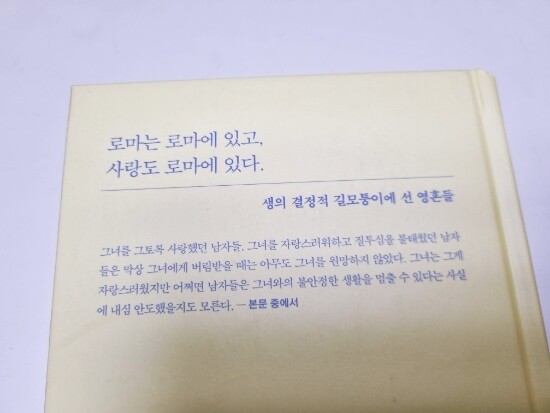 로마는 로마에 있고,
사랑도 로마에 있다.
생의 결정적 길모퉁이에 선 영혼들
그녀를 그토록 사랑했던 남자들. 그녀를 자랑스러워하고 질투심을 불태웠던 남자
들은 막상 그녀에게 버림받을 때는 아무도 그녀를 원망하지 않았다. 그녀는 그게
자랑스러웠지만 어쩌면 남자들은 그녀와의 불안정한 생활을 멈출 수 있다는 사실
에 내심 안도했을지도 모른다. — 본문 중에서